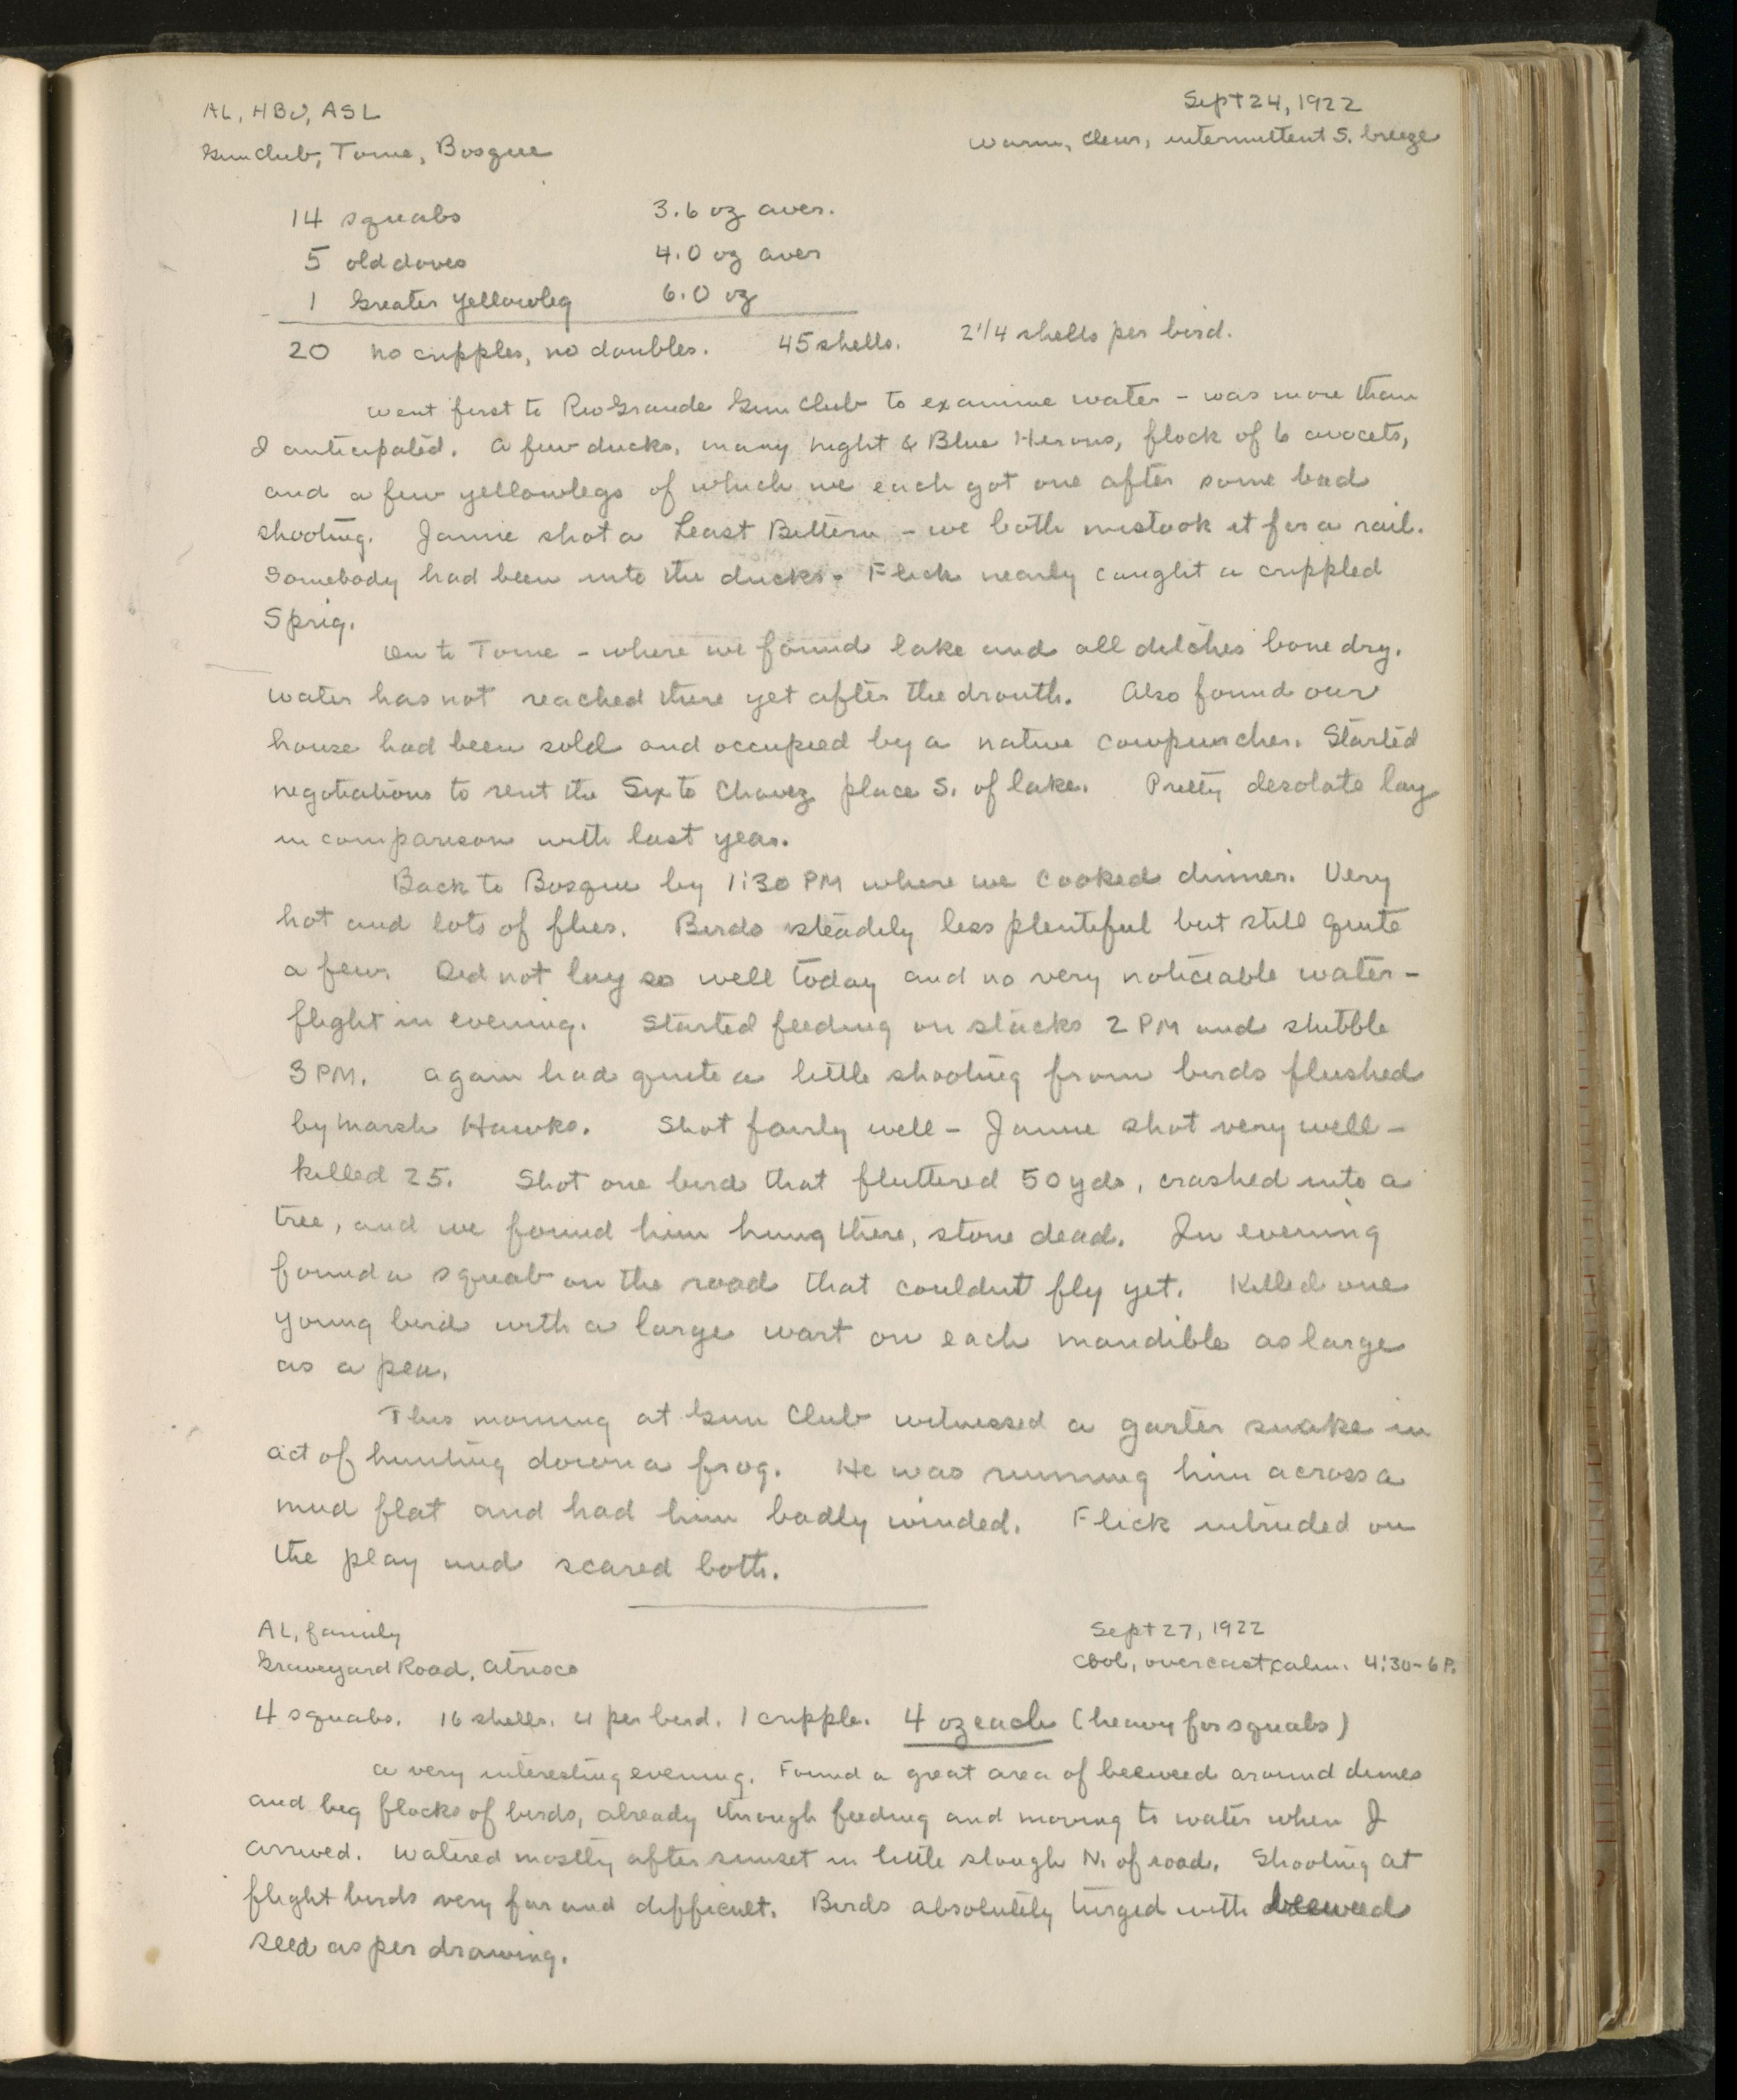 AL, HBJ, ASL
Sept 24, 1922
Gun Club, Tome, Bosque
Warm, clear, intermittent S. breeze
14 squabs 3.6 oz aver.
5 old doves 4.0 oz aver
1 Greater Yellowleg 6.0 oz
20 no cripples, no doubles. 45 shells. 2 1/4 shells per bird.
Went first to Rio Grande Gun Club to examine water - was more than
I anticipated. A few ducks, many Night & Blue Herons, flock of 6 avocets,
and a few yellowlegs of which we each got one after some bad
shooting. Jamie shot a Least Bittern - we both mistook it for a rail.
Somebody had been into the ducks - Flick nearly caught a crippled
Sprig.
On to Tome - where we found lake and all ditches bone dry.
Water has not reached there yet after the drouth. Also found our
house had been sold and occupied by a native cowpuncher. Started
negotiations to rent the Sixto Chavez place S. of lake. Pretty desolate lay
in comparison with last year.
Back to Bosque by 1:30 PM where we cooked dinner. Very
hot and lots of flies. Birds steadily less plentiful but still quite
a few. Did not lay so well today and no very noticeable water-
flight in evening. Started feeding on stacks 2 PM and stubble
3 PM. Again had quite a little shooting from birds flushed
by Marsh Hawks. Shot fairly well - Jamie shot very well -
killed 25. Shot one bird that fluttered 50 yds, crashed into a
tree, and we found him hung there, stone dead. In evening
found a squab on the road that couldnt fly yet. Killed one
young bird with a large wart on each mandible as large
as a pea.
This morning at Gun Club witnessed a garter snake in
act of hunting down a frog. He was running him across a
mud flat and had him badly winded. Flick intruded on
the play and scared both.
AL, family
Sept 27, 1922
Graveyard Road, Atrisco
Cool, overcast, calm. 4:30-6 P.
4 squabs. 16 shells. 4 per bird. 1 cripple. 4 oz each (heavy for squabs)
A very interesting evening. Found a great area of beeweed around dunes
and big flocks of birds, already through feeding and moving to water when I
arrived. Watered mostly after sunset in little slough N. of road. Shooting at
flight birds very far and difficult. Birds absolutely turged with beeweed
seed as per drawing.